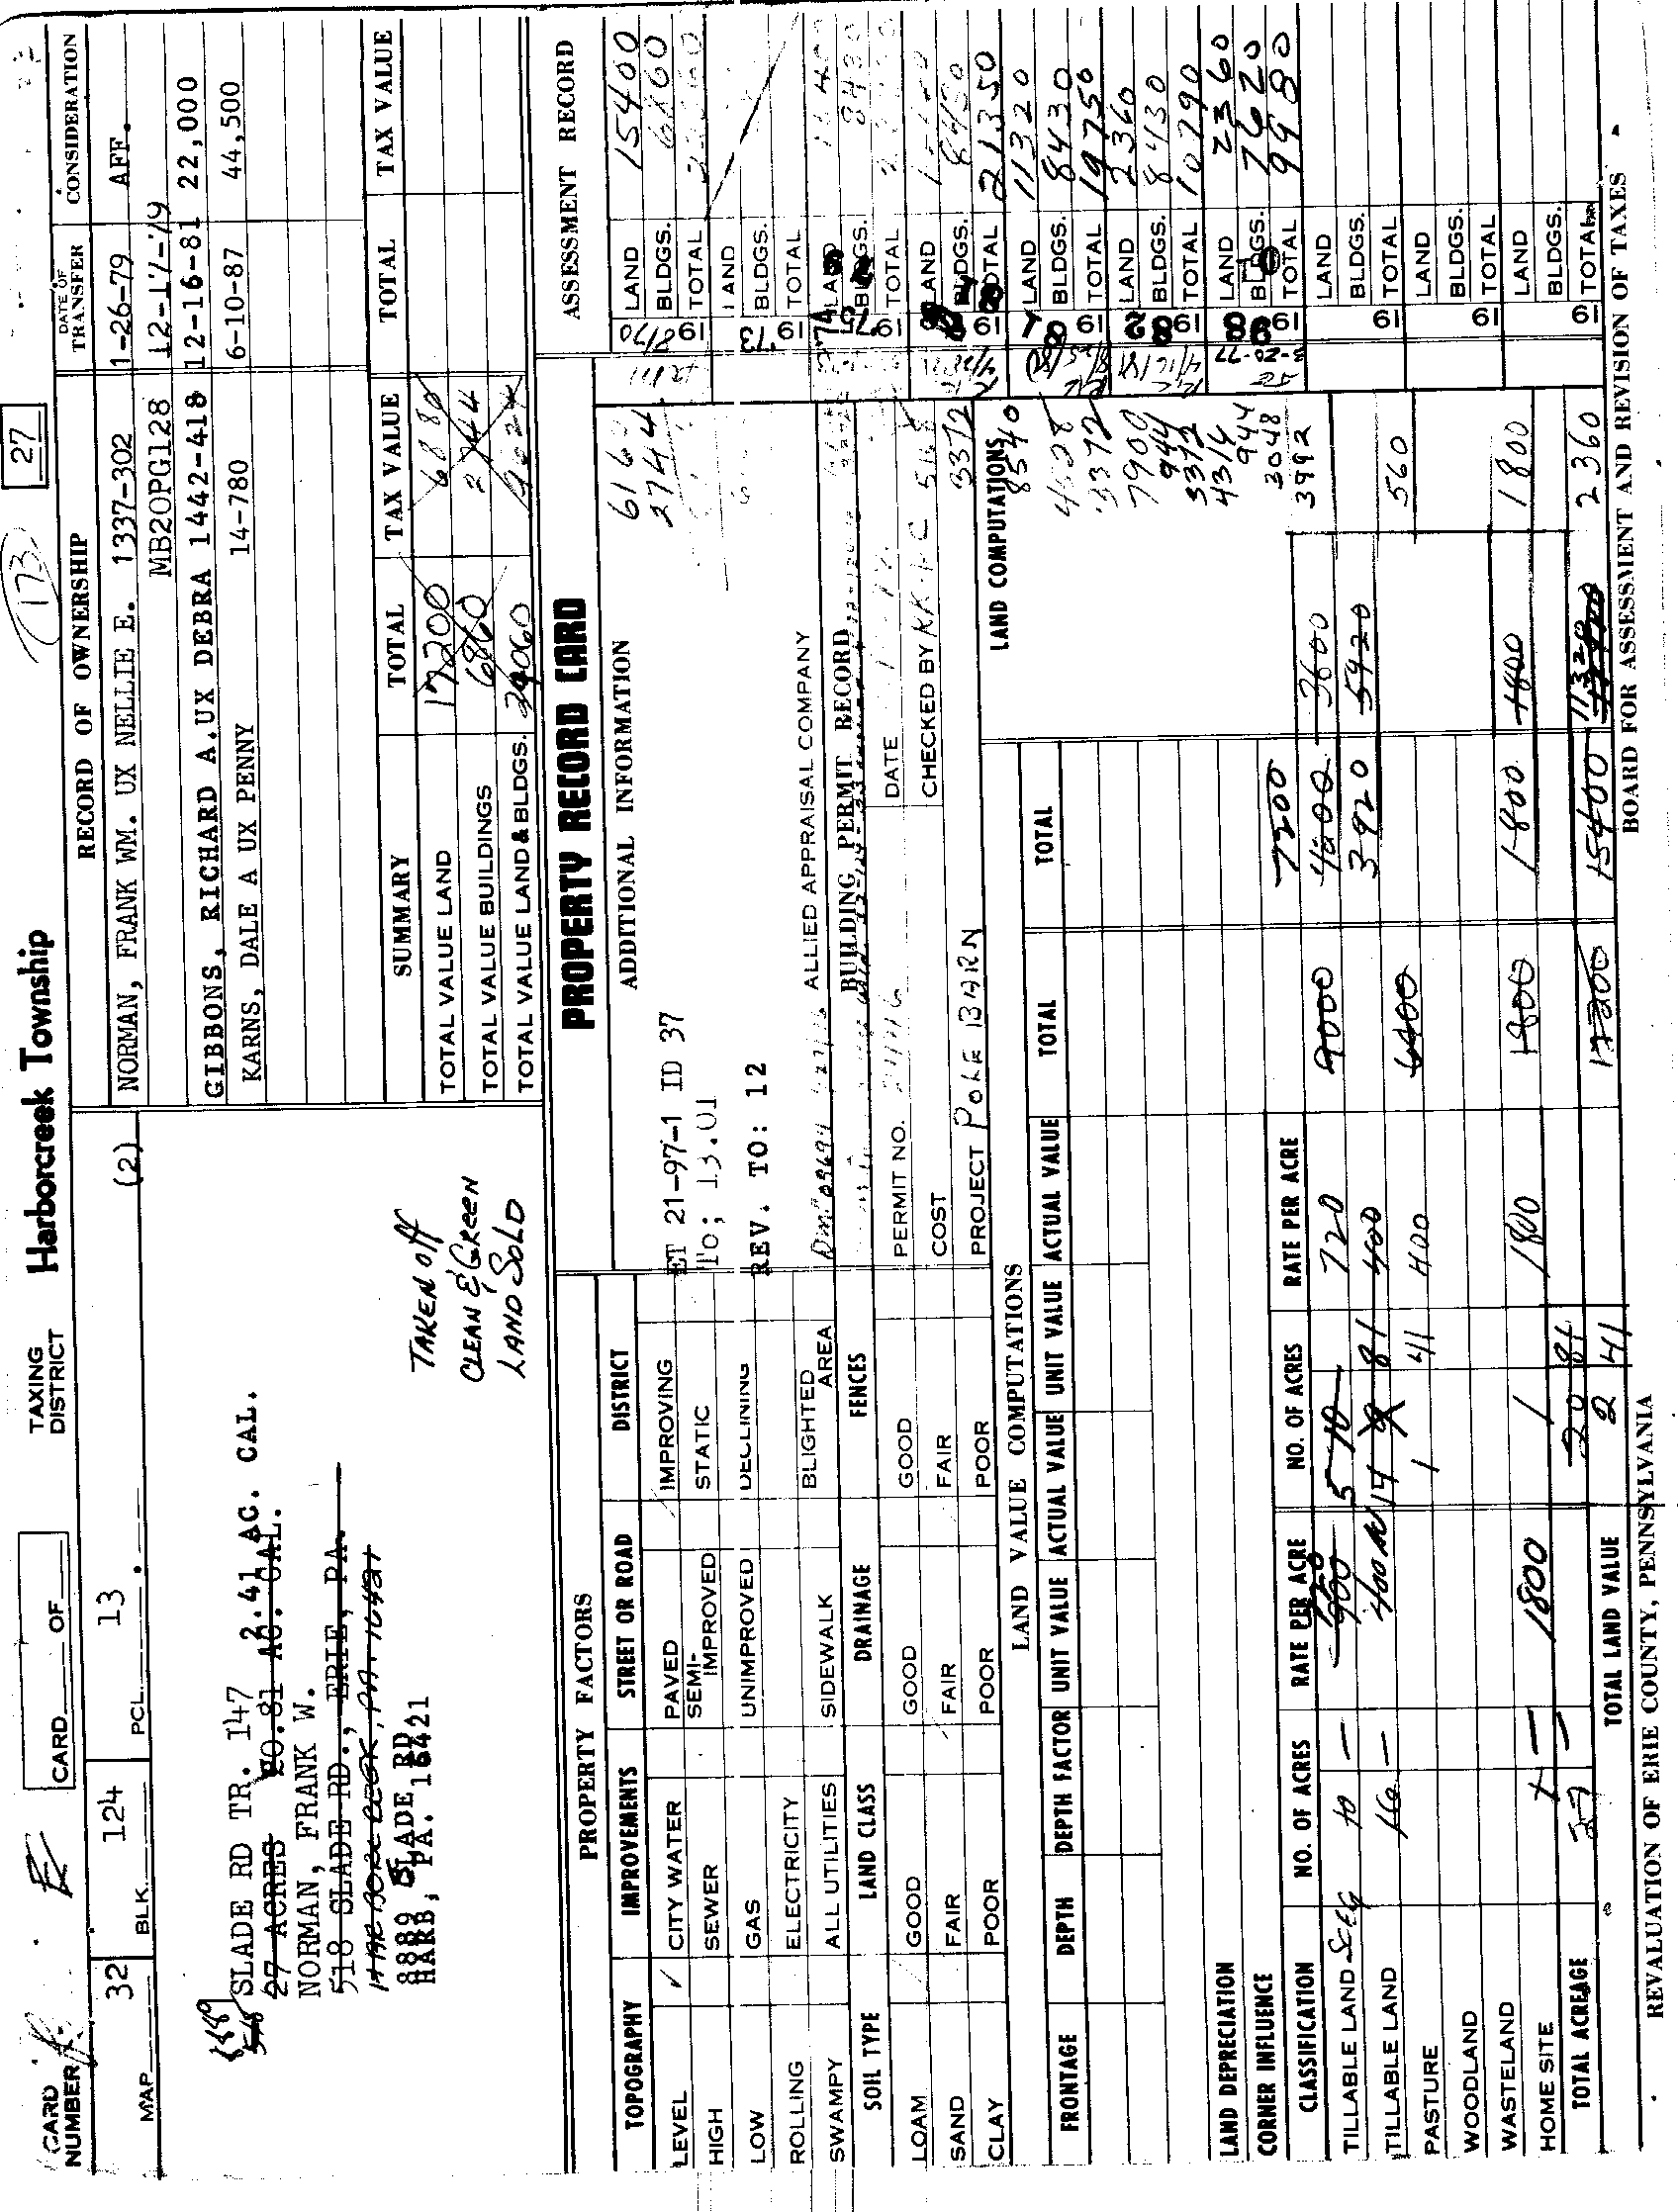 27
173
CARD NUMBER
CARD OF
TAXING DISTRICT Harborcreek Township
MAP 32 BLK. 124 PCL. 13 (2)
8889
SLADE RD TR. 147 2.41 AC. CAL.
27 ACRES 20.81 AC. CAL.
NORMAN, FRANK W.
518 SLADE RD., ERIE, PA.
HARBORCREEK, PA. 16421
8889 SLADE RD
HARB, PA. 16421
TAKEN off
CLEAN & GREEN
LAND SOLD
RECORD OF OWNERSHIP DATE OF TRANSFER CONSIDERATION
NORMAN, FRANK WM. UX NELLIE E. 1337-302 1-26-79 AFF.
MB20PG128 12-17-79
GIBBONS, RICHARD A.UX DEBRA 1442-418 12-16-81 22,000
KARNS, DALE A UX PENNY 14-780 6-10-87 44,500
SUMMARY TOTAL TAX VALUE TOTAL TAX VALUE
TOTAL VALUE LAND 17200 6880
TOTAL VALUE BUILDINGS 6860 2744
TOTAL VALUE LAND & BLDGS. 24060 9624
PROPERTY RECORD CARD
PROPERTY FACTORS
TOPOGRAPHY IMPROVEMENTS STREET OR ROAD DISTRICT
LEVEL ✓ CITY WATER PAVED IMPROVING
HIGH SEWER SEMI-IMPROVED STATIC
LOW GAS UNIMPROVED DECLINING
ROLLING ELECTRICITY
SWAMPY ALL UTILITIES SIDEWALK BLIGHTED AREA
SOIL TYPE LAND CLASS DRAINAGE FENCES
LOAM GOOD GOOD GOOD
SAND FAIR FAIR FAIR
CLAY POOR POOR POOR
ADDITIONAL INFORMATION
ET 21-97-1 ID 37
To; 13.01
REV. TO: 12
616
2744
ALLIED APPRAISAL COMPANY
BUILDING PERMIT RECORD
PERMIT NO. DATE
COST CHECKED BY
PROJECT POLE BARN
3372
ASSESSMENT RECORD
19 LAND 15400
BLDGS. 6860
TOTAL
1973 LAND
BLDGS.
TOTAL
LAND
BLDGS. 8430
TOTAL
19 LAND
BLDGS. 8430
TOTAL 21350
19 LAND 11320
BLDGS. 8430
TOTAL 19750
19 LAND 2360
BLDGS. 8430
TOTAL 10790
19 LAND 2360
BLDGS. 7620
TOTAL 9980
LAND
BLDGS.
19 TOTAL
LAND
BLDGS.
19 TOTAL
LAND
BLDGS.
19 TOTAL
LAND VALUE COMPUTATIONS
LAND COMPUTATIONS
8540
4528
3372
7900
944
3372
4316
944
3048
3992
FRONTAGE DEPTH DEPTH FACTOR UNIT VALUE ACTUAL VALUE UNIT VALUE ACTUAL VALUE TOTAL TOTAL
LAND DEPRECIATION
CORNER INFLUENCE
7200
CLASSIFICATION NO. OF ACRES RATE PER ACRE NO. OF ACRES RATE PER ACRE
TILLABLE LAND 10 — 900 5 720 9000 3600
TILLABLE LAND 16 — 400 14 81 400 3920 5920
PASTURE 1 41 400 6400 560
WOODLAND
WASTELAND
HOME SITE 1 — 1800 1 1800 1800 1800 1800 1800
TOTAL ACREAGE 27 — 20 81 17200 15400 11320 2360
2 41
TOTAL LAND VALUE
REVALUATION OF ERIE COUNTY, PENNSYLVANIA
BOARD FOR ASSESSMENT AND REVISION OF TAXES